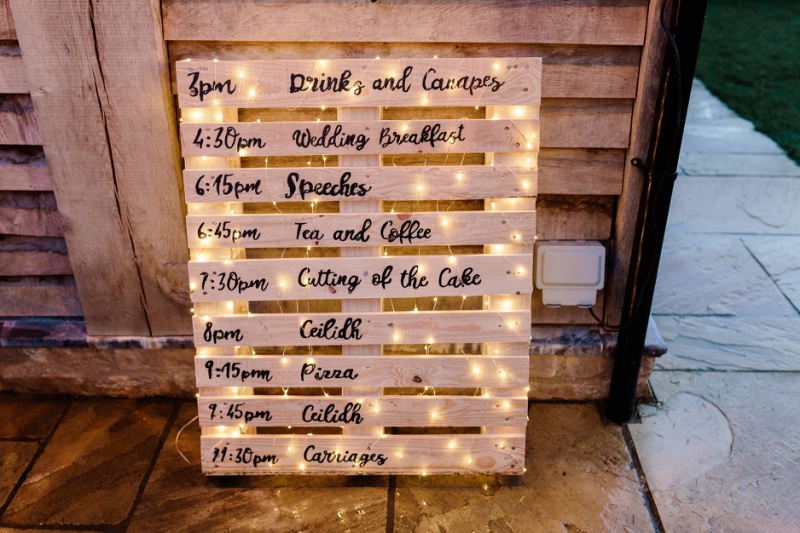 3pm Drinks and Canapes
4:30pm Wedding Breakfast
6:15pm Speeches
6:45pm Tea and Coffee
7:30pm Cutting of the Cake
8pm Ceilidh
9:15pm Pizza
9:45pm Ceilidh
11:30pm Carriages